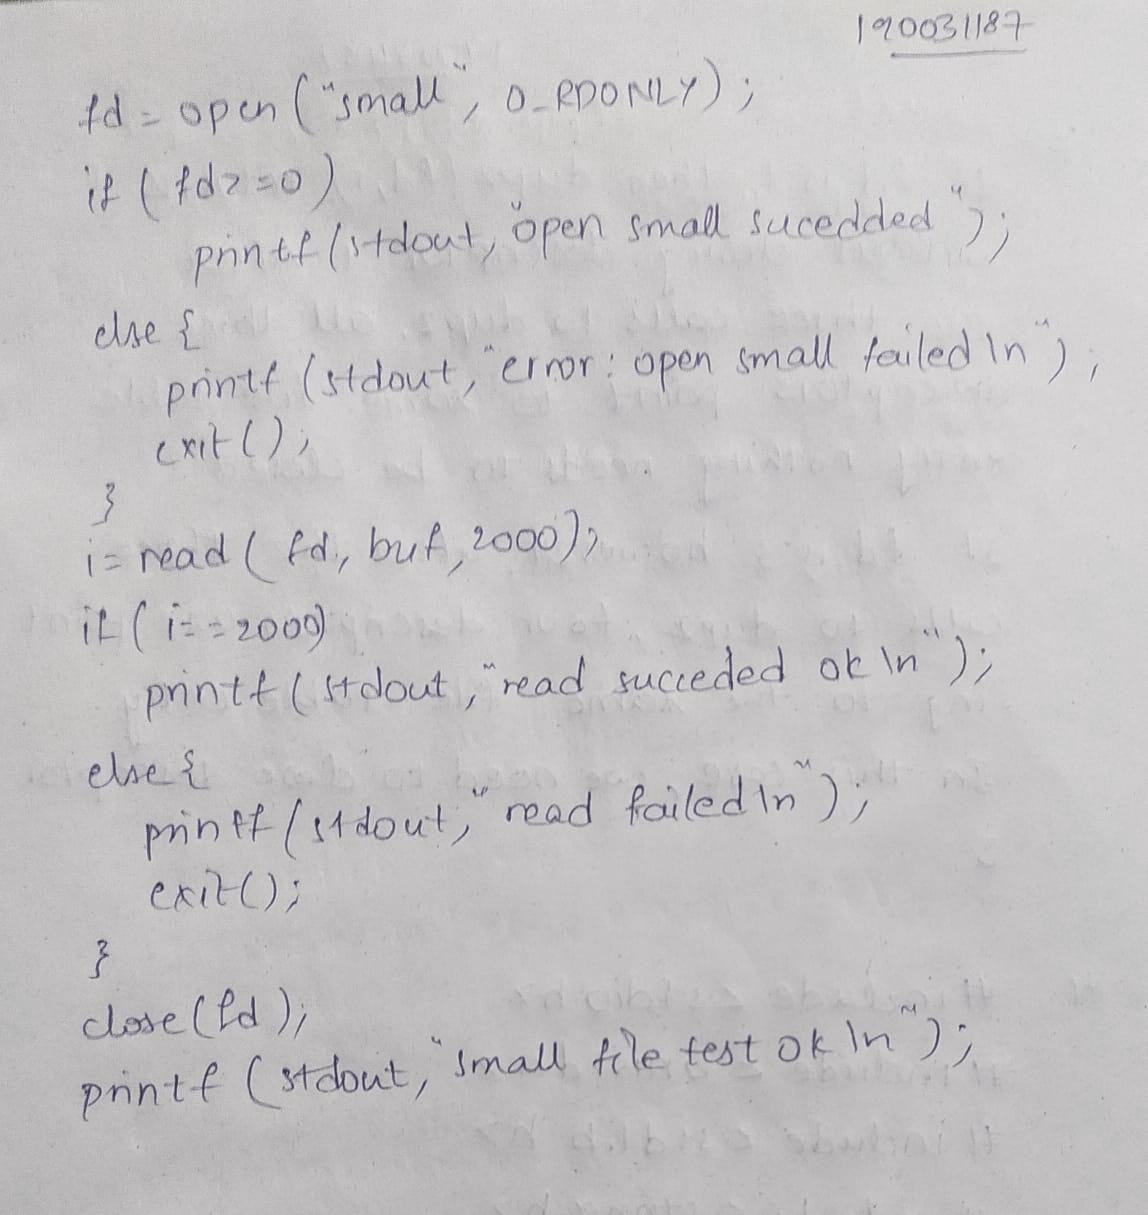 190031187
fd = open ("small", O_RDONLY);
if (fd>=0)
printf (stdout, "open small sucedded");
else {
printf (stdout, "error: open small failed \n");
exit ();
}
i= read ( fd, buf, 2000);
if ( i==2000)
printf ( stdout, "read succeded ok \n");
else {
printf (stdout, "read failed \n");
exit();
}
close (fd);
printf (stdout, "small file test ok \n");